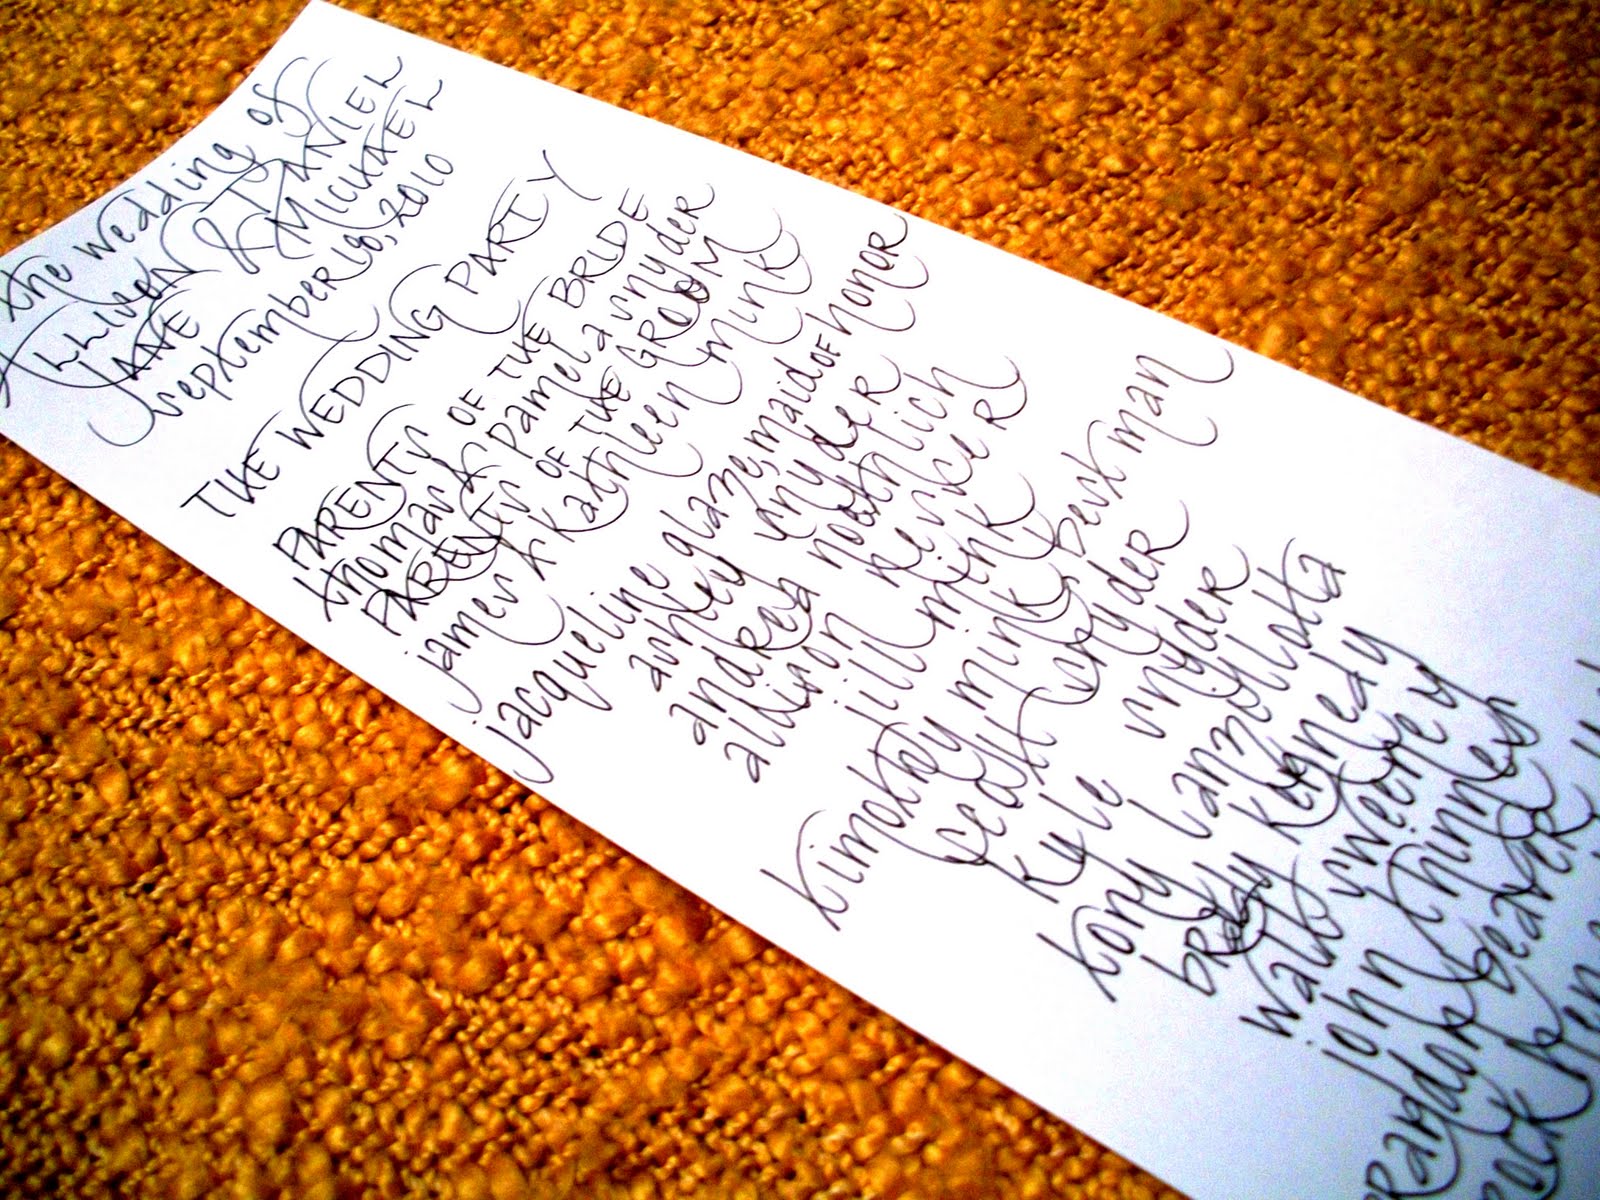 the wedding of
Allison & Daniel
Jane & Michael
september 18, 2010
THE WEDDING PARTY
PARENTS OF THE BRIDE
thomas & pamela snyder
PARENTS OF THE GROOM
james & kathleen mink
jacqueline glaze, maid OF HONOR
ashley snyder
andrea noahlich
allison hescer
jill mink
timothy mink, best man
leah snyder
kyle snyder
tony lanzolotta
brady kennedy
walt sweeney
john thinnes